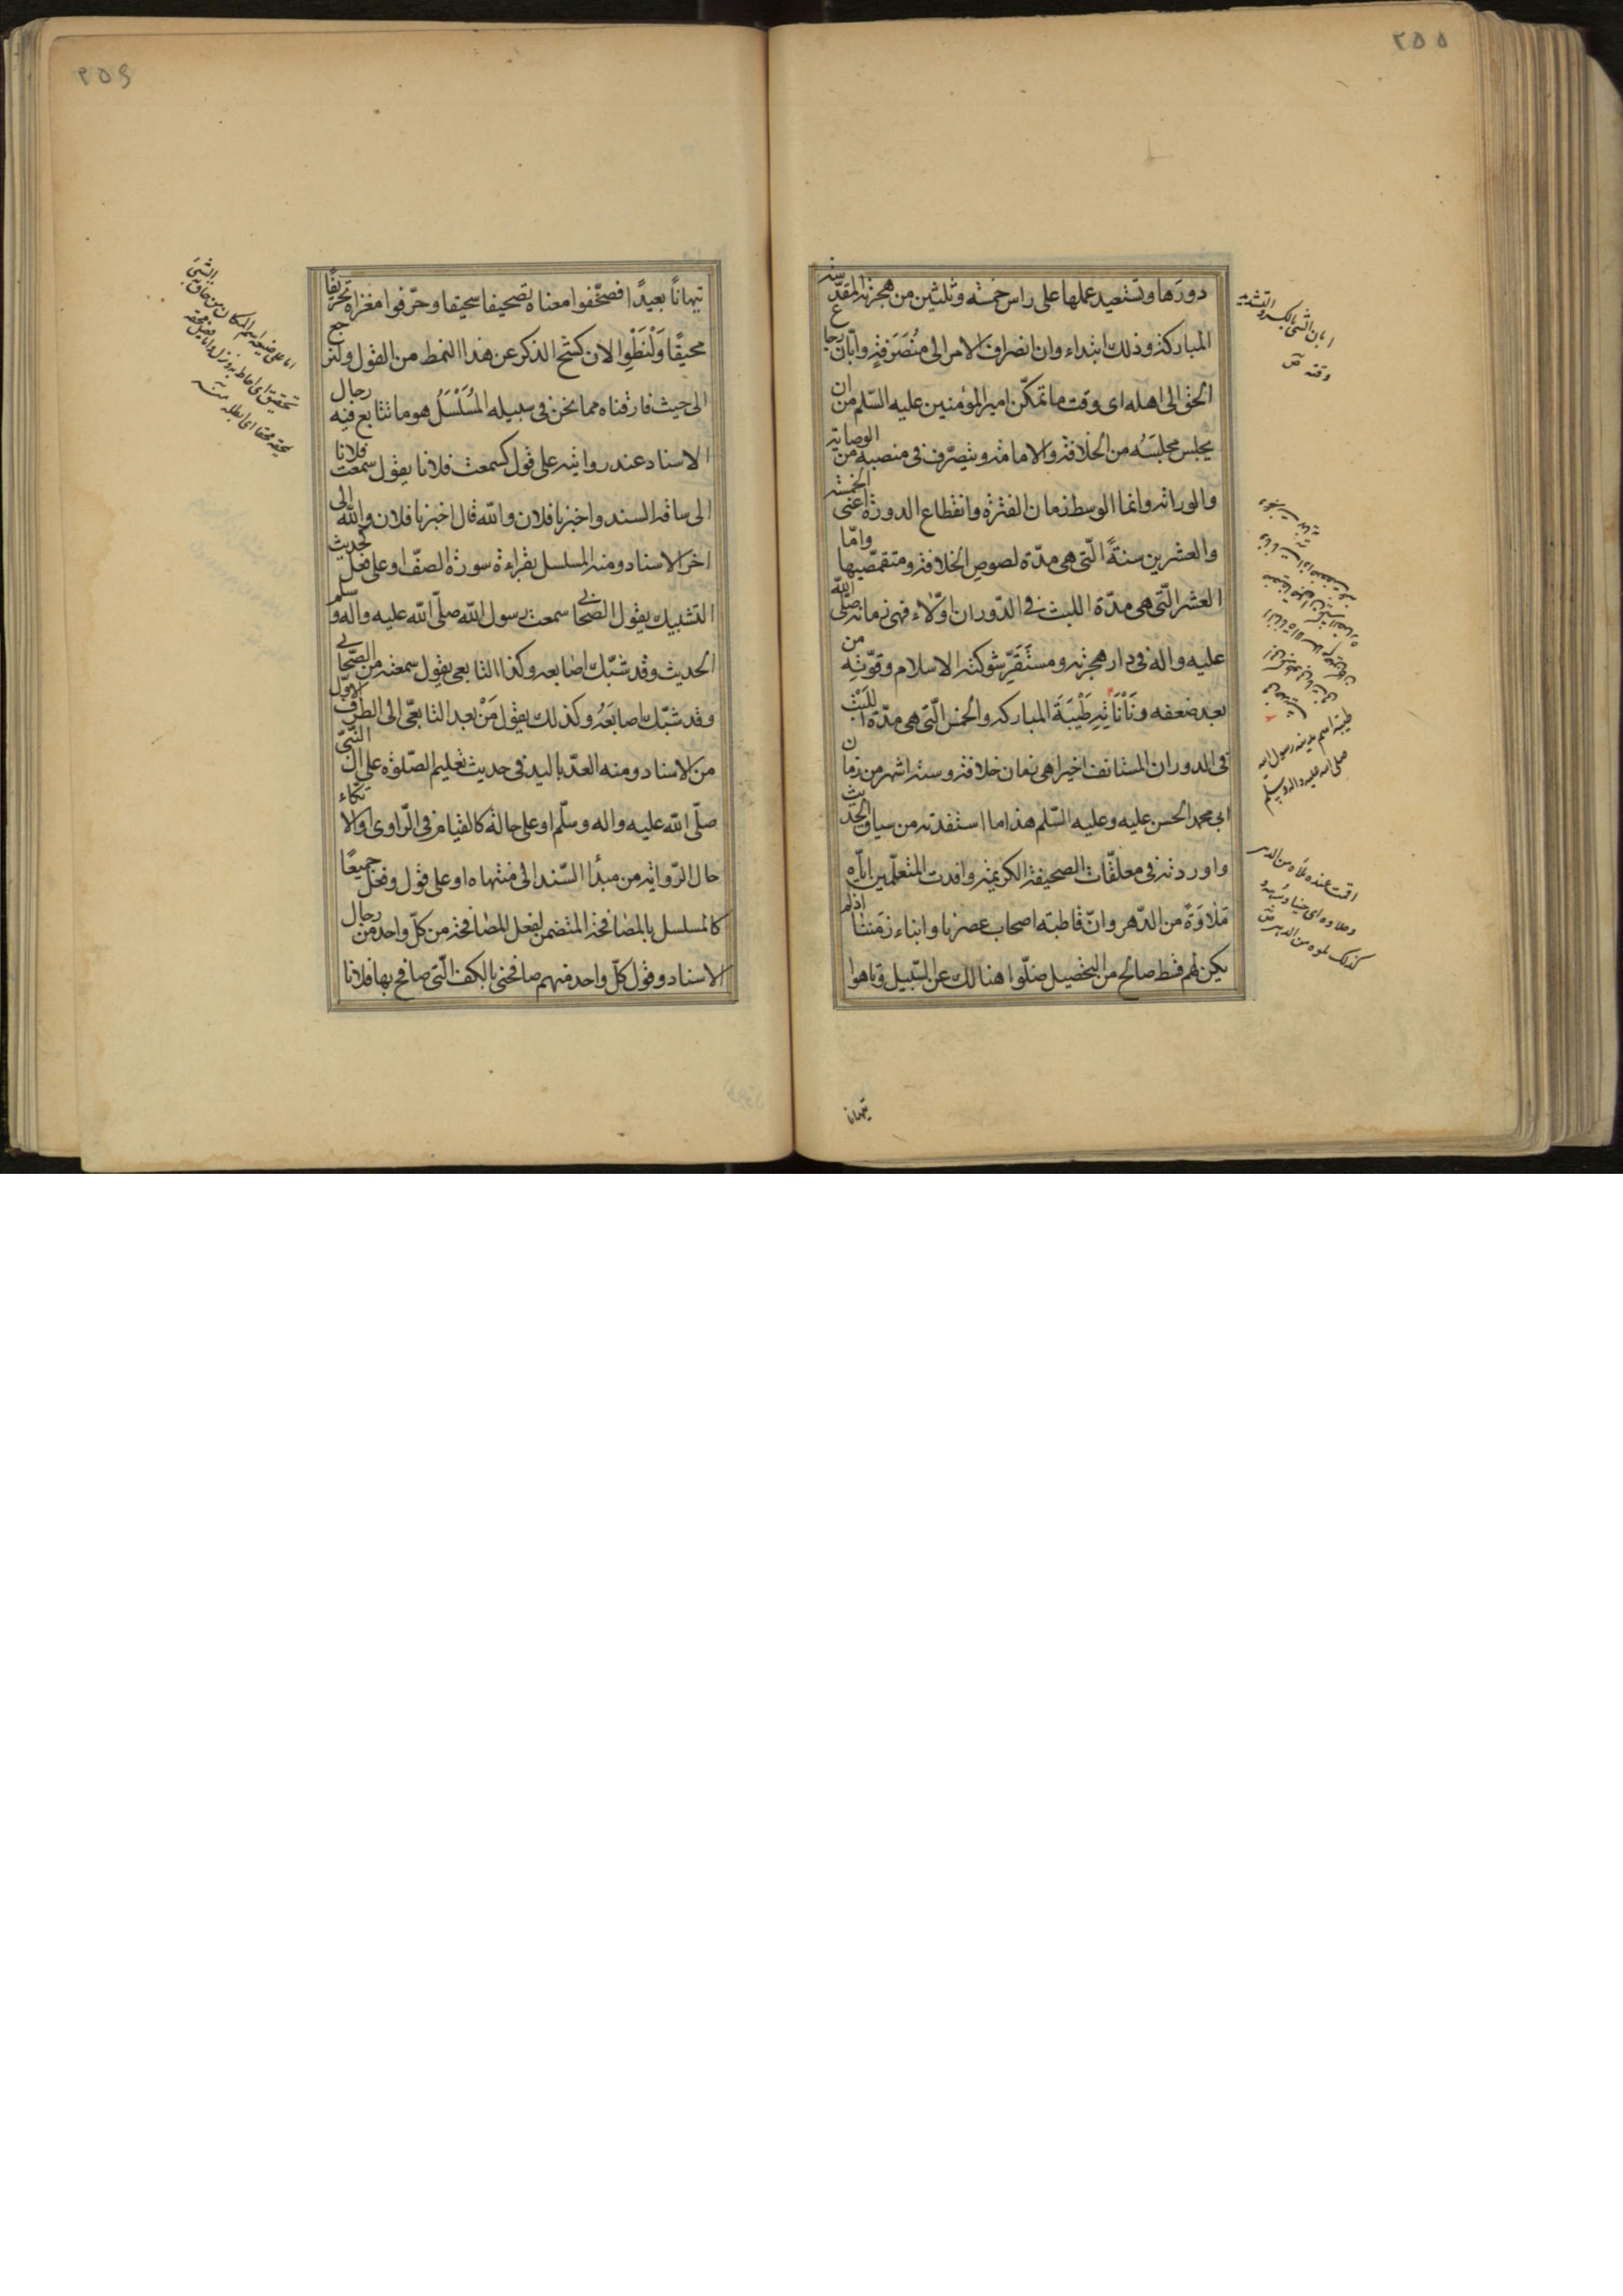 ٢٥٥
دورَها وتستعيد عملها على راس خمسة وثلثين من هجرته المقدّسة
المباركة وذلك ابتداء وان انصراف الامر الى مُنصَرَفِه وابّان رجاع
الحق الى اهله اى وقت ما تمكّن امير المؤمنين عليه السّلم من ان
يجلس مجلسَه من الخلافة والامامة ويتصرّف فى منصبه من الوصاية
والوراثة وانما الوسط زمان الفترة وانقطاع الدورة اعنى الخمسة
والعشرين سنةً الّتى هى مدّة لصوص الخلافة ومتقمّصيها وامّا
العشر الّتى هى مدّة اللبث فى الدّوران اوّلاء فهى زمانه صلّى الله
عليه واله فى دار هجرته ومستَقَرِّ شوكته الاسلام وقوّتِه من
بعد ضعفه ونَأْنَأتِه طَيْبَةَ المباركة والخمس الّتى هى مدّة اللَبْث
فى الدوران المستانف اخيرا هى زمان خلافته وستة اشهر من زمان
ابى محمد الحسن عليه وعليه السّلم هذا ما استفدته من سياق الحديث
واوردته فى معلقّات الصحيفة الكريمة وافدت المتعلّمين ايّاه
مَلاوَةً من الدّهر وانّ قاطبة اصحاب عصرنا وابناء زمَننا اذ لم
يكن لهم قسط صالح من التحصيل ضلّوا هنالك عن السّبيل وتاهوا
تيهانا
ابان الشئ بالكسر والتشديد
وقته ص
طيبة اسم مدينة رسول الله
صلى الله عليه واله وسلم
اقمت عنده ملاوة من الدهر
كذلك ملوة من الدهر ص
٢٥٦
تيهاناً بعيدًا فصحّفوا معناه تصحيفا سحيقا وحرّفوا مغزاه تحريفًا
محيقًا وَلْنَطْوِ الان كشح الذكر عن هذا النمط من القول ولنرجع
الى حيث فارقناه مما نحن فى سبيله المُسَلْسَلُ هو ما تتابع فيه رجال
الاسناد عند روايته على قول كسمعت فلانا يقول سمعت فلانا
الى ساقة السند واخبرنا فلان والله قال اخبرنا فلان والله الى
اخر الاسناد ومنه المسلسل بقراءة سورة الصفّ او على فعل كحديث
التشبيك يقول الصّحابى سمعت رسول الله صلّى الله عليه واله وسلم
الحديث وقد شبّك اصابعه وكذا التابعى يقول سمعته من الصّحابى
وقد شبّك اصابعَهُ وكذلك يقول مَنْ بعد التابعىّ الى الطرف الاوّل
من الاسناد ومنه العدّ باليد فى حديث تعليم الصّلوة على ال النّبىّ
صلّى الله عليه واله وسلّم او على حالة كالقيام فى الرّاوى او الاتكّاء
حال الرّواية من مبدأ السّند الى منتهاه او على قول وفعل جميعًا
كالمسلسل بالمصافحة المتضمن لفعل المصافحة من كلّ واحد من رجال
الاسناد وقول كلّ واحد منهم صافحنى بالكفّ الّتى صافح بها فلانا